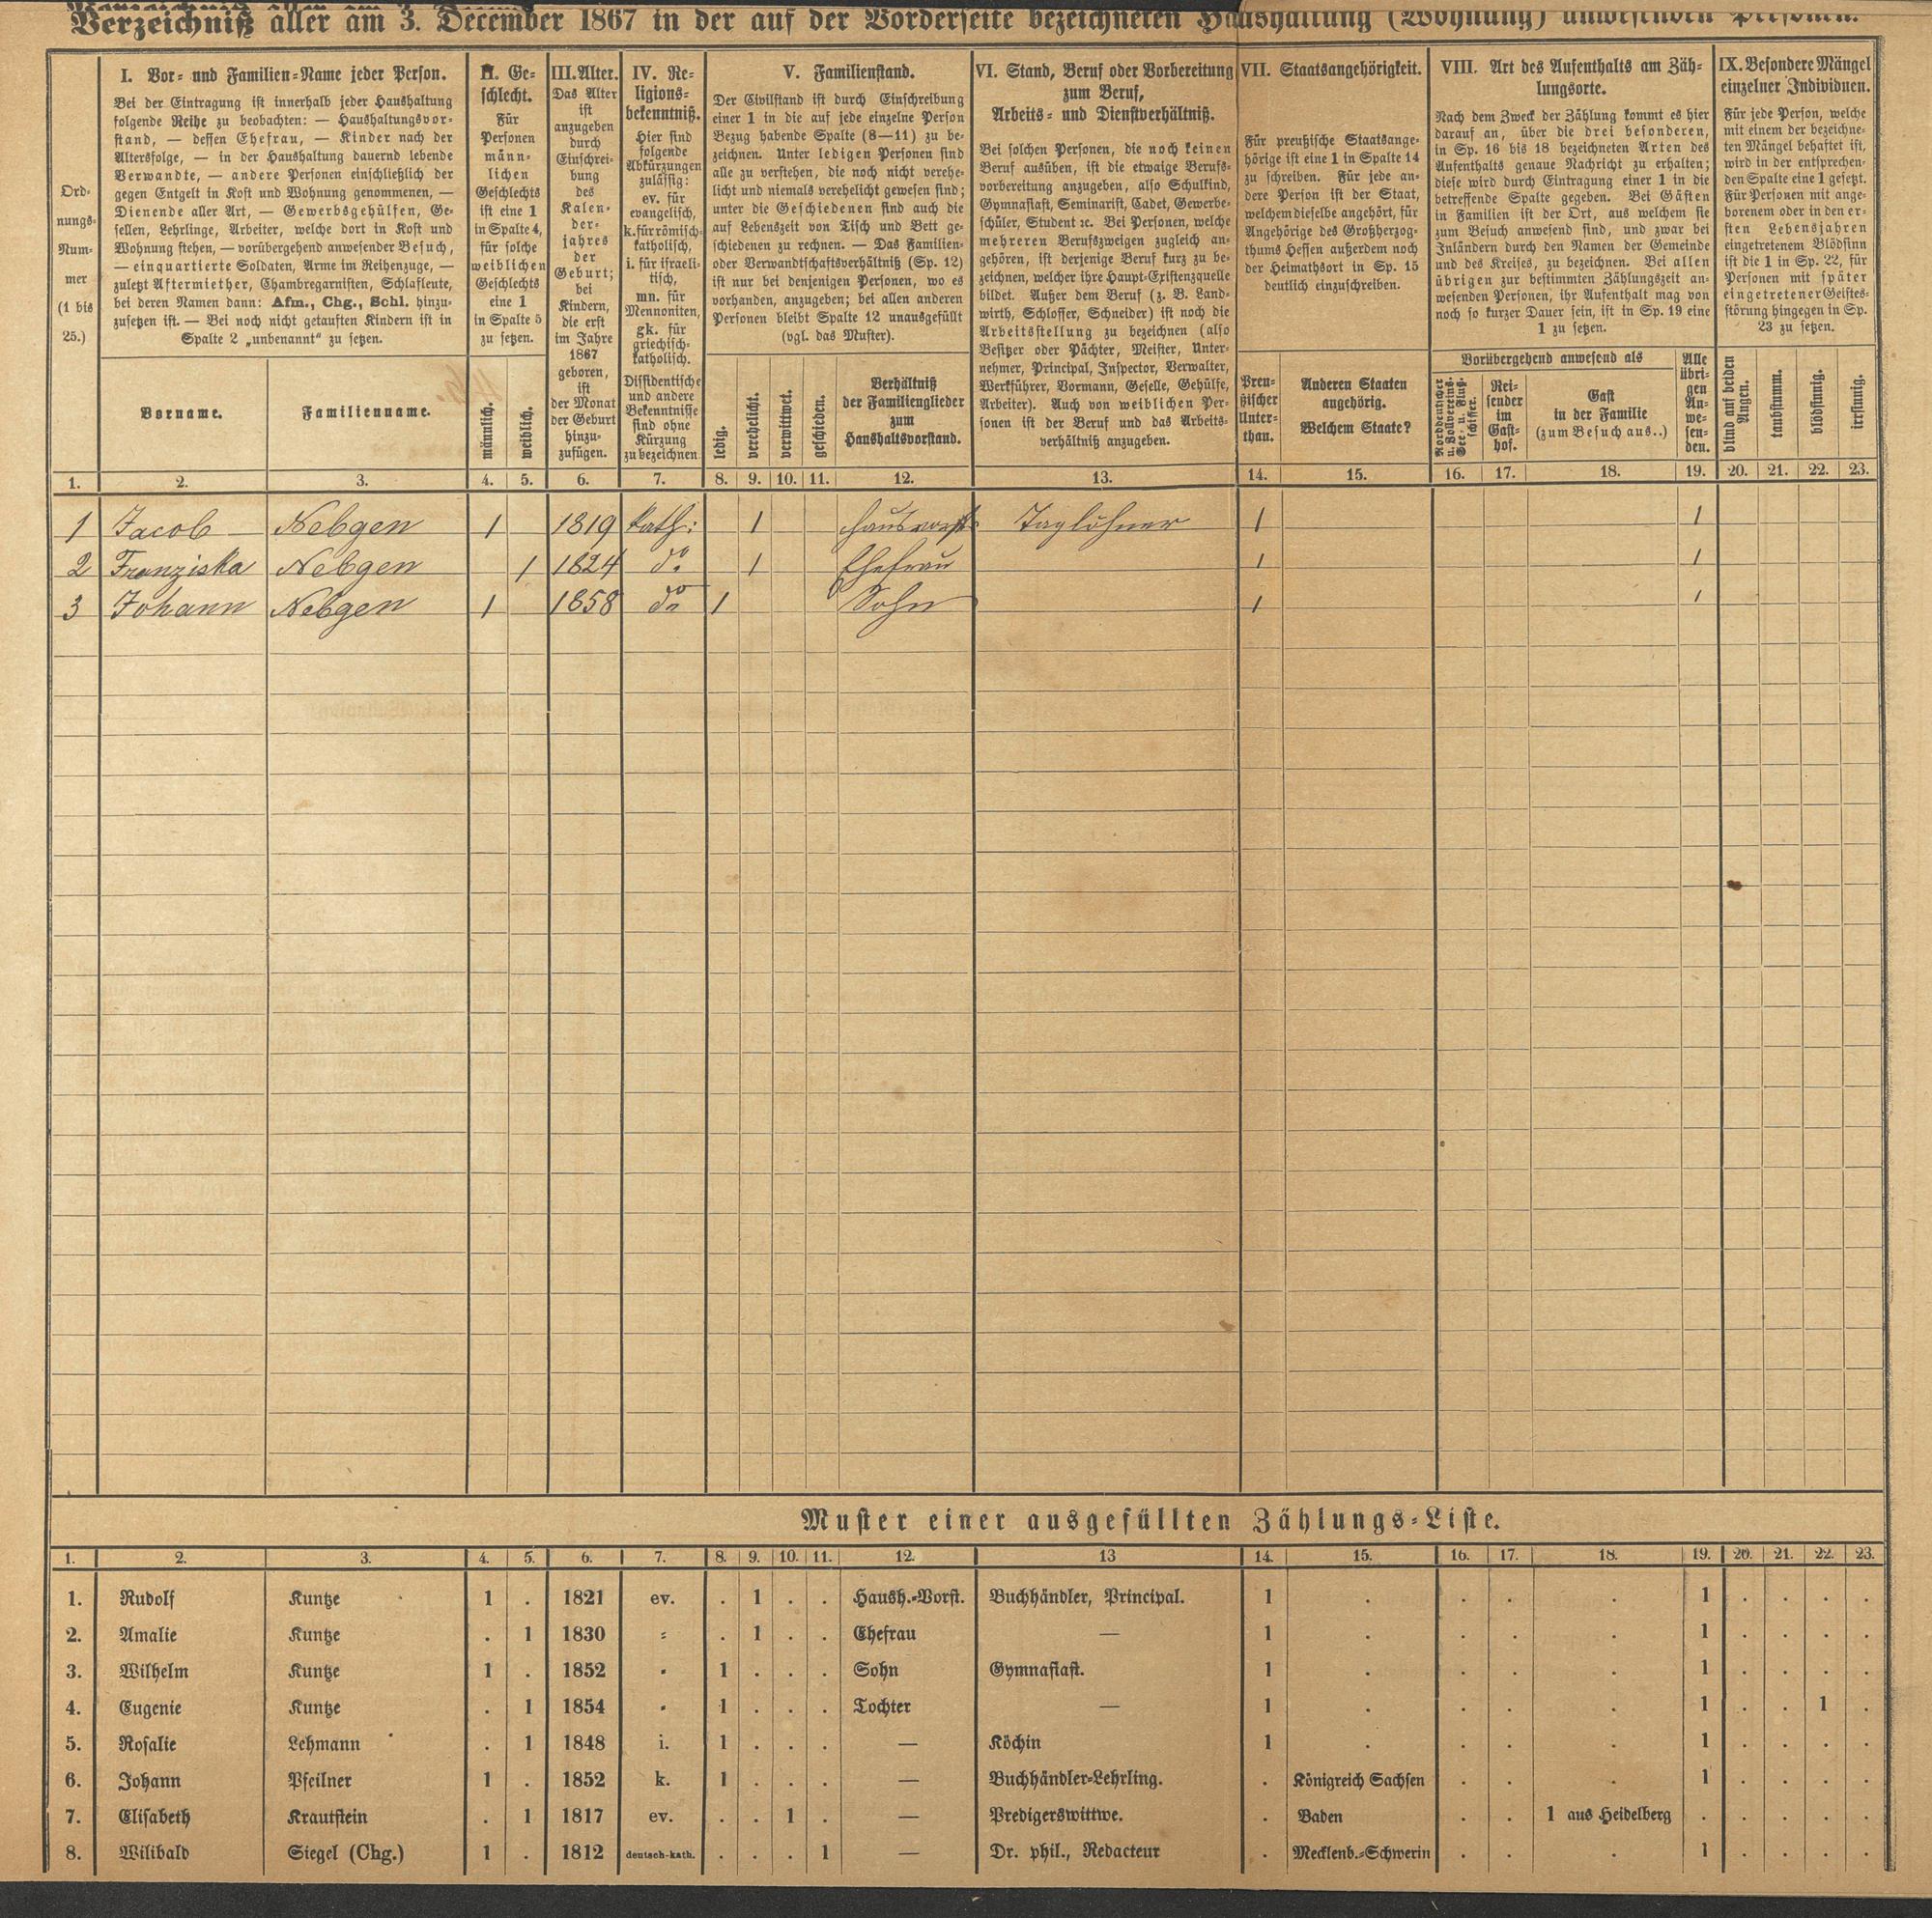 Verzeichniß aller am 3. December 1867 in der auf der Vorderseite bezeichneten Haushaltung (Wohnung) anwesenden Personen.
Ord-
nungs-
Num-
mer
(1 bis
25.)
I. Vor- und Familien-Name jeder Person.
Bei der Eintragung ist innerhalb jeder Haushaltung
folgende Reihe zu beobachten: — Haushaltungsvor-
stand, — dessen Ehefrau, — Kinder nach der
Altersfolge, — in der Haushaltung dauernd lebende
Verwandte, — andere Personen einschließlich der
gegen Entgelt in Kost und Wohnung genommenen, —
Dienende aller Art, — Gewerbsgehülfen, Ge-
sellen, Lehrlinge, Arbeiter, welche dort in Kost und
Wohnung stehen, — vorübergehend anwesender Besuch,
— einquartierte Soldaten, Arme im Reihenzuge, —
zuletzt Aftermiether, Chambregarnisten, Schlafleute,
bei deren Namen dann: Afm., Chg., Schl. hinzu-
zusetzen ist. — Bei noch nicht getauften Kindern ist in
Spalte 2 „unbenannt“ zu setzen.
Vorname.
Familienname.
II. Ge-
schlecht.
Für
Personen
männ-
lichen
Geschlechts
ist eine 1
in Spalte 4,
für solche
weiblichen
Geschlechts
eine 1
in Spalte 5
zu setzen.
männlich.
weiblich.
III. Alter.
Das Alter
ist
anzugeben
durch
Einschrei-
bung
des
Kalen-
der-
jahres
der
Geburt;
bei
Kindern,
die erst
im Jahre
1867
geboren,
ist
der Monat
der Geburt
hinzu-
zufügen.
IV. Re-
ligions-
bekenntniß.
Hier sind
folgende
Abkürzungen
zulässig:
ev. für
evangelisch,
k. für römisch-
katholisch,
i. für israeli-
tisch,
mn. für
Mennoniten,
gk. für
griechisch-
katholisch.
Dissidentische
und andere
Bekenntnisse
sind ohne
Kürzung
zu bezeichnen
V. Familienstand.
Der Civilstand ist durch Einschreibung
einer 1 in die auf jede einzelne Person
Bezug habende Spalte (8—11) zu be-
zeichnen. Unter ledigen Personen sind
alle zu verstehen, die noch nicht verehe-
licht und niemals verehelicht gewesen sind;
unter die Geschiedenen sind auch die
auf Lebenszeit von Tisch und Bett ge-
schiedenen zu rechnen. — Das Familien-
oder Verwandtschaftsverhältniß (Sp. 12)
ist nur bei denjenigen Personen, wo es
vorhanden, anzugeben; bei allen anderen
Personen bleibt Spalte 12 unausgefüllt
(vgl. das Muster).
ledig.
verehelicht.
verwittwet.
geschieden.
Verhältniß
der Familienglieder
zum
Haushaltsvorstand.
VI. Stand, Beruf oder Vorbereitung
zum Beruf,
Arbeits- und Dienstverhältniß.
Bei solchen Personen, die noch keinen
Beruf ausüben, ist die etwaige Berufs-
vorbereitung anzugeben, also Schulkind,
Gymnasiast, Seminarist, Cadet, Gewerbe-
schüler, Student ꝛc. Bei Personen, welche
mehreren Berufszweigen zugleich an-
gehören, ist derjenige Beruf kurz zu be-
zeichnen, welcher ihre Haupt-Existenzquelle
bildet. Außer dem Beruf (z. B. Land-
wirth, Schlosser, Schneider) ist noch die
Arbeitsstellung zu bezeichnen (also
Besitzer oder Pächter, Meister, Unter-
nehmer, Principal, Inspector, Verwalter,
Werkführer, Vormann, Geselle, Gehülfe,
Arbeiter). Auch von weiblichen Per-
sonen ist der Beruf und das Arbeits-
verhältniß anzugeben.
VII. Staatsangehörigkeit.
Für preußische Staatsange-
hörige ist eine 1 in Spalte 14
zu schreiben. Für jede an-
dere Person ist der Staat,
welchem dieselbe angehört, für
Angehörige des Großherzog-
thums Hessen außerdem noch
der Heimathsort in Sp. 15
deutlich einzuschreiben.
Preu-
ßischer
Unter-
than.
Anderen Staaten
angehörig.
Welchem Staate?
VIII. Art des Aufenthalts am Zäh-
lungsorte.
Nach dem Zweck der Zählung kommt es hier
darauf an, über die drei besonderen,
in Sp. 16 bis 18 bezeichneten Arten des
Aufenthalts genaue Nachricht zu erhalten;
diese wird durch Eintragung einer 1 in die
betreffende Spalte gegeben. Bei Gästen
in Familien ist der Ort, aus welchem sie
zum Besuch anwesend sind, und zwar bei
Inländern durch den Namen der Gemeinde
und des Kreises, zu bezeichnen. Bei allen
übrigen zur bestimmten Zählungszeit an-
wesenden Personen, ihr Aufenthalt mag von
noch so kurzer Dauer sein, ist in Sp. 19 eine
1 zu setzen.
Vorübergehend anwesend als
Norddeutscher
u. Zollvereins-
See- u. Fluß-
schiffer.
Rei-
sender
im
Gast-
hof.
Gast
in der Familie
(zum Besuch aus..)
Alle
übri-
gen
An-
we-
sen-
den.
IX. Besondere Mängel
einzelner Individuen.
Für jede Person, welche
mit einem der bezeichne-
ten Mängel behaftet ist,
wird in der entsprechen-
den Spalte eine 1 gesetzt.
Für Personen mit ange-
borenem oder in den er-
sten Lebensjahren
eingetretenem Blödsinn
ist die 1 in Sp. 22, für
Personen mit später
eingetretener Geistes-
störung hingegen in Sp.
23 zu setzen.
blind auf beiden
Augen.
taubstumm.
blödsinnig.
irrsinnig.
1. 2. 3. 4. 5. 6. 7. 8. 9. 10. 11. 12. 13. 14. 15. 16. 17. 18. 19. 20. 21. 22. 23.
1 Jacob Nebgen 1 1819 kath: 1 Hausvorst. Taglöhner 1 1
2 Franziska Nebgen 1 1824 do 1 Ehefrau 1 1
3 Johann Nebgen 1 1858 do 1 Sohn 1 1
Muster einer ausgefüllten Zählungs-Liste.
1. 2. 3. 4. 5. 6. 7. 8. 9. 10. 11. 12. 13 14. 15. 16. 17. 18. 19. 20. 21. 22. 23.
1. Rudolf Kuntze 1 . 1821 ev. . 1 . . Haush.-Vorst. Buchhändler, Principal. 1 . . . . 1 . . . .
2. Amalie Kuntze . 1 1830 = . 1 . . Ehefrau — 1 . . . . 1 . . . .
3. Wilhelm Kuntze 1 . 1852 " 1 . . . Sohn Gymnasiast. 1 . . . . 1 . . . .
4. Eugenie Kuntze . 1 1854 " 1 . . . Tochter — 1 . . . . 1 . . 1 .
5. Rosalie Lehmann . 1 1848 i. 1 . . . — Köchin 1 . . . . 1 . . . .
6. Johann Pfeilner 1 . 1852 k. 1 . . . — Buchhändler-Lehrling. . Königreich Sachsen . . . 1 . . . .
7. Elisabeth Krautstein . 1 1817 ev. . . 1 . — Predigerswittwe. . Baden . . 1 aus Heidelberg . . . . .
8. Wilibald Siegel (Chg.) 1 . 1812 deutsch-kath. . . . 1 — Dr. phil., Redacteur . Mecklenb.-Schwerin . . . 1 . . . .